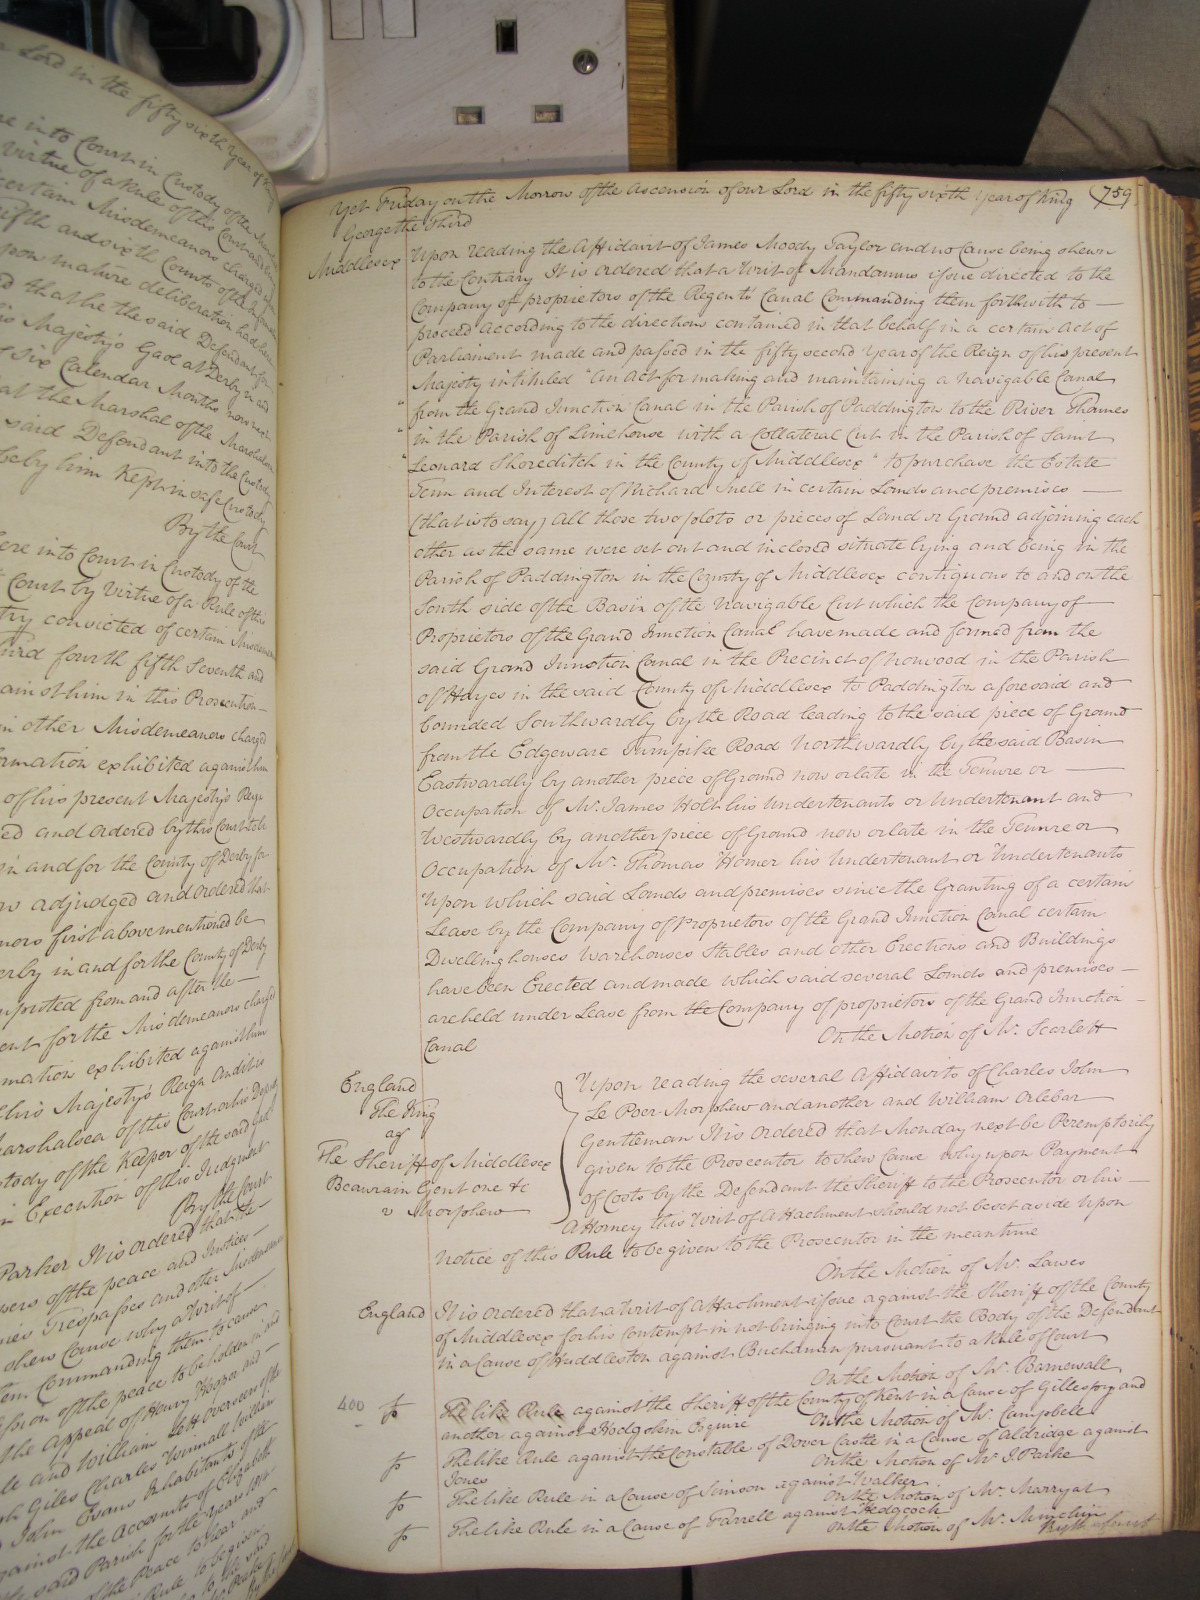 Lord in the fifty sixth Year of King
into Court in Custody of the
virtue of a Rule of this Court
certain Misdemeanors charged
fifth and sixth Counts of the
upon mature deliberation had
that he the said Defendant for
Majesty's Gaol at Derby in and
six Calendar Months now next
at the Marshal of the Marshalsea
said Defendant into the Custody
by him Kept in safe Custody
By the Court
into Court in Custody of the
Court by Virtue of a Rule of this
convicted of certain
fourth fifth Seventh and
against him in this Prosecution
in other Misdemeanors charged
exhibited against him
of his present Majesty's Reign
and ordered by this Court
in and for the County of Derby for
adjudged and ordered that
first above mentioned be
Derby in and for the County of Derby
computed from and after the
for the Misdemeanors charged
exhibited against him
his Majesty's Reign And
Marshalsea of this Court or his Deputy
Custody of the Keeper of the said Gaol
in Execution of this Judgment
By the Court
Parker It is ordered that the
of the peace and Justices
Trespasses and other
shew Cause why a Writ of
Commanding them to cause
Session of the peace to be holden in and
the Appeal of Henry Hooper and
and William Lett Overseers of the
Giles Charles
John Evans Inhabitants of the
against the Accounts of Elizabeth
the said Parish for the Year 1814
of the Peace to hear and
Rule to be given
Yet Friday on the Morrow of the Ascension of our Lord in the fifty sixth Year of King 759
George the Third
Middlesex Upon reading the Affidavit of James Moody Taylor and no Cause being shewn
to the Contrary It is ordered that a Writ of Mandamus issue directed to the
Company of proprietors of the Regents Canal Commanding them forthwith to —
proceed according to the directions contained in that behalf in a certain Act of
Parliament made and passed in the fifty second Year of the Reign of his present
Majesty intituled "An Act for making and maintaining a navigable Canal
"from the Grand Junction Canal in the Parish of Paddington to the River Thames
"in the Parish of Limehouse with a Collateral Cut in the Parish of Saint
"Leonard Shoreditch in the County of Middlesex" to purchase the Estate
Term and Interest of Richard Snell in certain Lands and premises —
(that is to say) All those two plots or pieces of Land or Ground adjoining each
other as the same were set out and inclosed situate lying and being in the
Parish of Paddington in the County of Middlesex contiguous to and on the
South side of the Basin of the navigable Cut which the Company of
Proprietors of the Grand Junction Canal have made and formed from the
said Grand Junction Canal in the Precinct of Norwood in the Parish
of Hayes in the said County of Middlesex to Paddington aforesaid and
bounded Southwardly by the Road leading to the said piece of Ground
from the Edgeware Turnpike Road Northwardly by the said Basin
Eastwardly by another piece of Ground now or late in the Tenure or —
Occupation of Mr. James Holt his Undertenants or Undertenant and
Westwardly by another piece of Ground now or late in the Tenure or
Occupation of Mr. Thomas Homer his Undertenant or Undertenants
Upon which said Lands and premises since the Granting of a certain
Lease by the Company of Proprietors of the Grand Junction Canal certain
Dwellinghouses Warehouses Stables and other Erections and Buildings
have been Erected and made which said several Lands and premises —
are held under Lease from the Company of proprietors of the Grand Junction —
Canal On the Motion of Mr. Scarlett
England
The King
agt
The Sheriff of Middlesex
Beaurain Gent one &c
v Morphew
Upon reading the several Affidavits of Charles John
Le Poer Morphew and another and William Orlebar
Gentleman It is Ordered that Monday next be Peremptorily
given to the Prosecutor to shew Cause why upon Payment
of Costs by the Defendant the Sheriff to the Prosecutor or his —
Attorney this Writ of Attachment should not be set aside Upon
notice of this Rule to be given to the Prosecutor in the meantime
On the Motion of Mr. Lawes
England It is ordered that a writ of Attachment issue against the Sheriff of the County
of Middlesex for his Contempt in not bringing into Court the Body of the Defendant
in a Cause of Huddleston against Buchanan pursuant to a Rule of Court
On the Motion of Mr. Barnewall
400 fs The like Rule against the Sheriff of the County of Kent in a Cause of Gillespy and
another against Hodgskin Esquire On the Motion of Mr. Campbell
fs The like Rule against the Constable of Dover Castle in a Cause of Aldridge against
Jones On the Motion of Mr. J Parke
fs The like Rule in a Cause of Simson against Walker
On the Motion of Mr. Marryat
fs The like Rule in a Cause of Farrell against Hedgcock
On the Motion of Mr. Minchin
By the Court